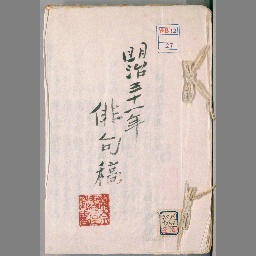 明治三十一年
俳句稿
WB12
27